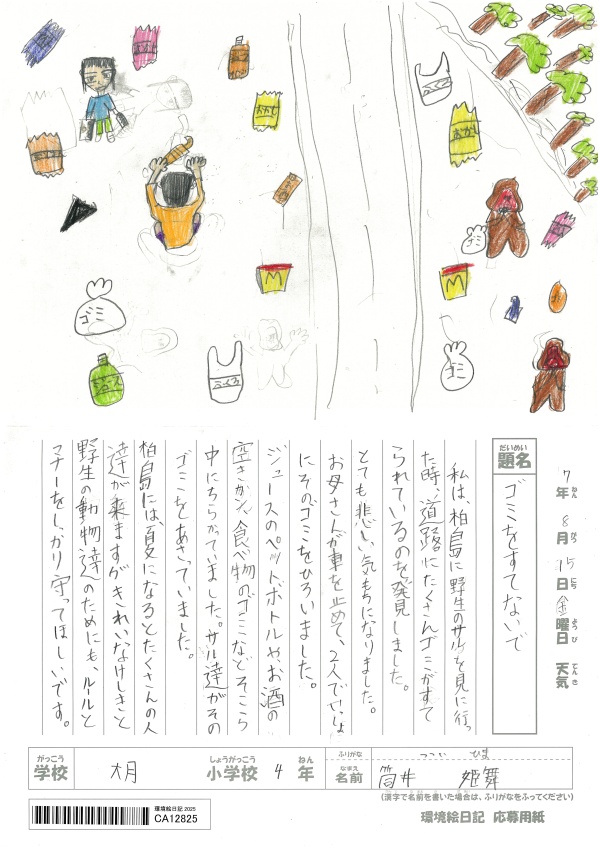 おかし
おかし
M
M
ゴミ
ゴミ
ゴミ
ジュース
ふくろ
7年 8月 15日 金曜日 天気
ねん がつ にち ようび てんき
だいめい
題名
ゴミをすてないで
私は、柏島に野生のサルを見に行っ
た時、道路にたくさんゴミがすて
られているのを発見しました。
とても悲しい気もちになりました。
お母さんが車を止めて、2人でいっしょ
にそのゴミをひろいました。
ジュースのペットボトルやお酒の
空きかン、食べ物のゴミなどそこら
中にちらかっていました。サル達がその
ゴミをあさっていました。
柏島には、夏になるとたくさんの人
達が来ますがきれいなけしきと
野生の動物達のためにも、ルールと
マナーをしっかり守ってほしいです。
がっこう しょうがっこう ねん
学校 大月 小学校 4 年
ふりがな つつい ひま
なまえ
名前 筒井 姫舞
(漢字で名前を書いた場合は、ふりがなをふってください)
環境絵日記 2025
CA12825
環境絵日記 応募用紙